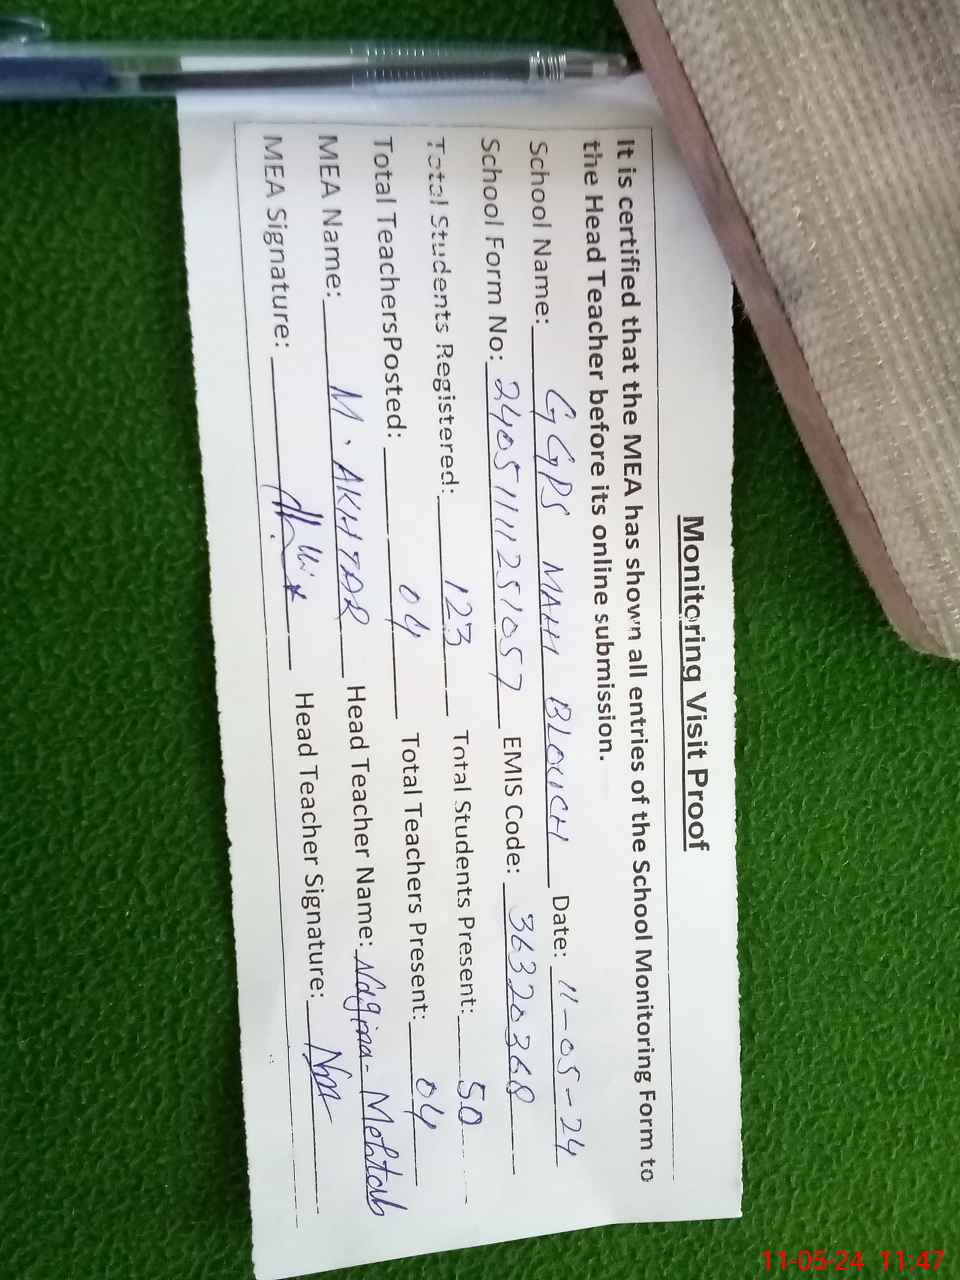 Monitoring Visit Proof
It is certified that the MEA has shown all entries of the School Monitoring Form to
the Head Teacher before its online submission.
School Name: GGPS MAHI BLOUCH Date: 11-05-24
School Form No: 24051111251057 EMIS Code: 36320368
Total Students Registered: 123 Total Students Present: 50
Total TeachersPosted: 04 Total Teachers Present: 04
MEA Name: M. AKHTAR Head Teacher Name: Nagina-Mehtab
MEA Signature: Head Teacher Signature:
11-05-24 11:47